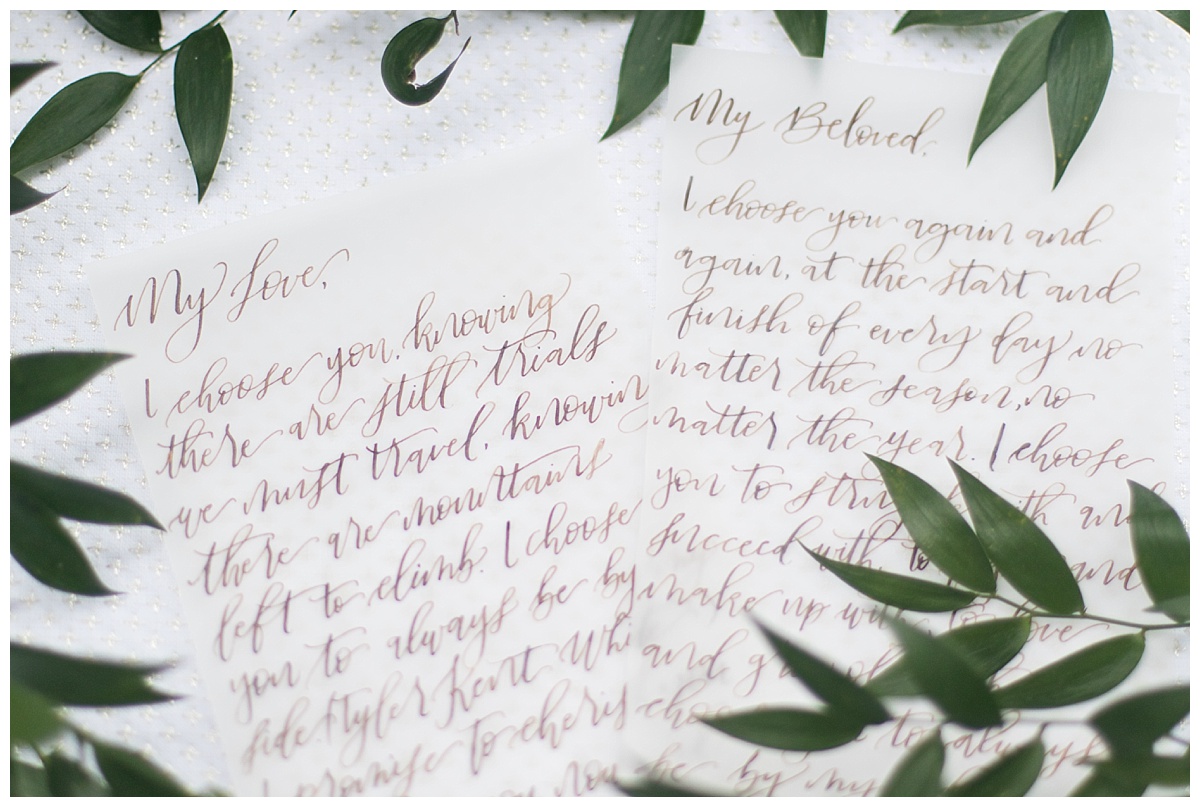 My Love,
I choose you, knowing
there are still trials
we must travel, knowin
there are mountains
left to climb. I choose
you to always be by
side. Tyler Kent Whi
I promise to cheris
you
My Beloved,
I choose you again and
again, at the start and
finish of every day no
matter the season, no
matter the year. I choose
you to with and
succeed with, to and
make up with, to love
and
to always
be by my